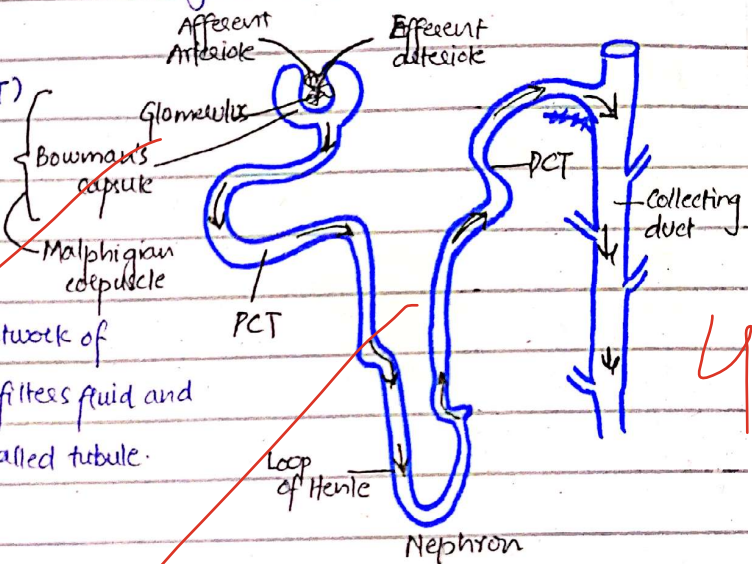 Afferent
Arteriole
Efferent
arteriole
T)
Glomerulus
Bowman's
capsule
Malphigian
corpuscle
PCT
DCT
Collecting
duct
twork of
filters fluid and
alled tubule.
Loop
of Henle
Nephron
4